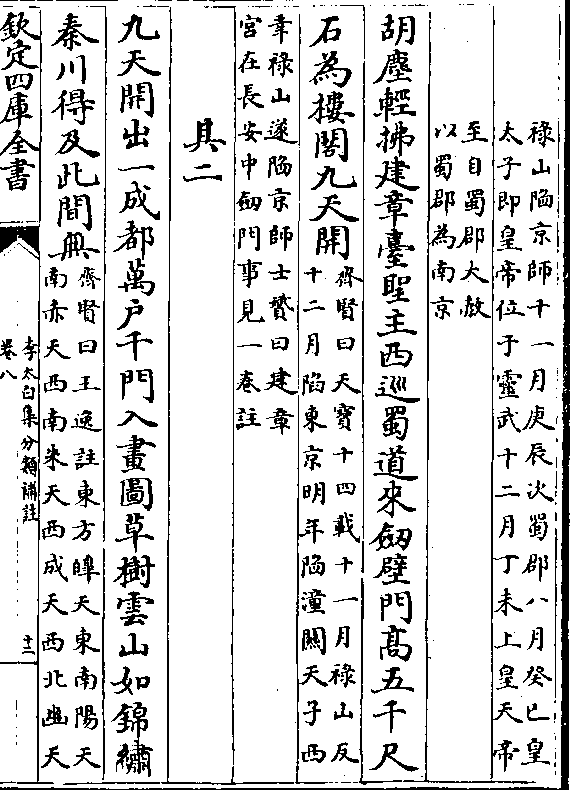 祿山陷京師十一月庚辰次蜀郡八月癸巳皇
太子即皇帝位于靈武十二月丁未上皇天帝
至自蜀郡大赦
以蜀郡為南京
胡塵輕拂建章臺聖主西巡蜀道來劔壁門高五千尺
石為樓閣九天開
齊賢曰天寶十四載十一月祿山反
十二月陷東京明年陷潼關天子西
幸祿山遂陷京師士贇曰建章
宮在長安中劔門事見一卷註
其二
九天開出一成都萬户千門入畫圖草樹雲山如錦繡
秦川得及此間無
齊賢曰王逸註東方皡天東南陽天
南赤天西南朱天西成天西北幽天
欽定四庫全書
李太白集分類補註
卷八
十三